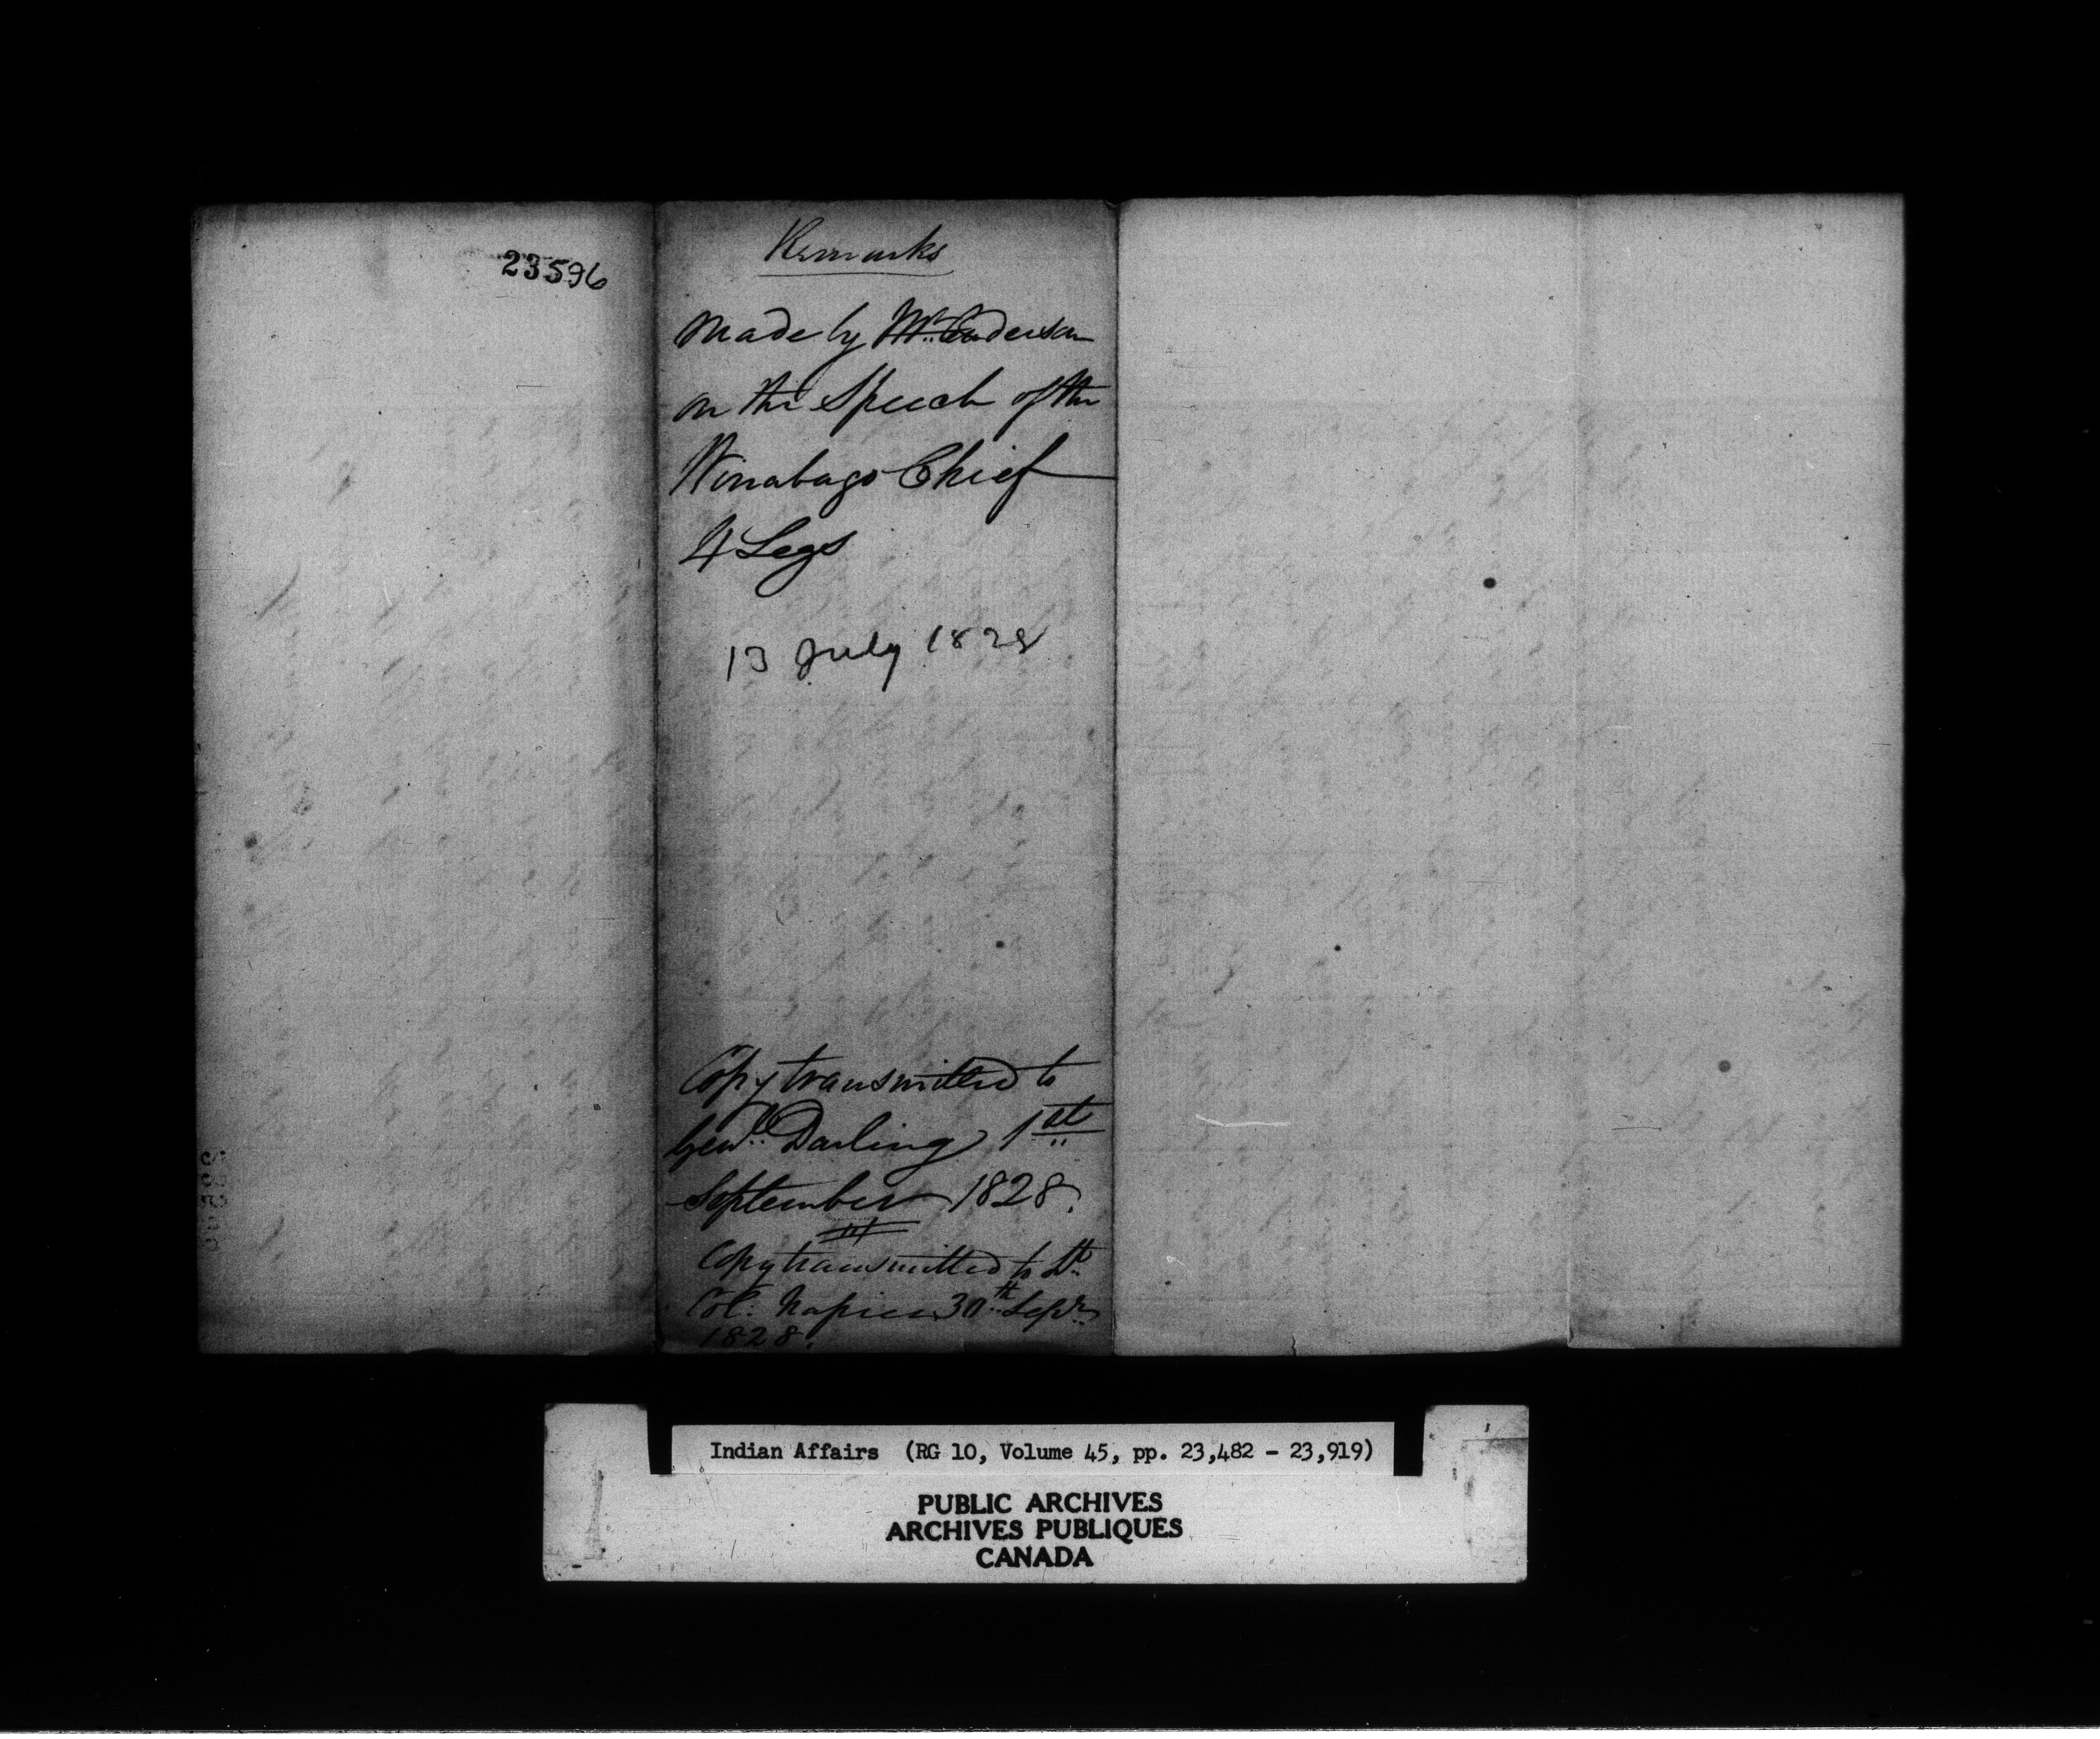 23596
Remarks
Made by Mr. Anderson
on the Speech of the
Winabago Chief
4 Legs
13 July 1828
Copy transmitted to
Genl. Darling 1st
September 1828.
Copy transmitted to Lt.
Col: Napier 30th Sepr.
1828.
Indian Affairs (RG 10, Volume 45, pp. 23,482 - 23,919)
PUBLIC ARCHIVES
ARCHIVES PUBLIQUES
CANADA